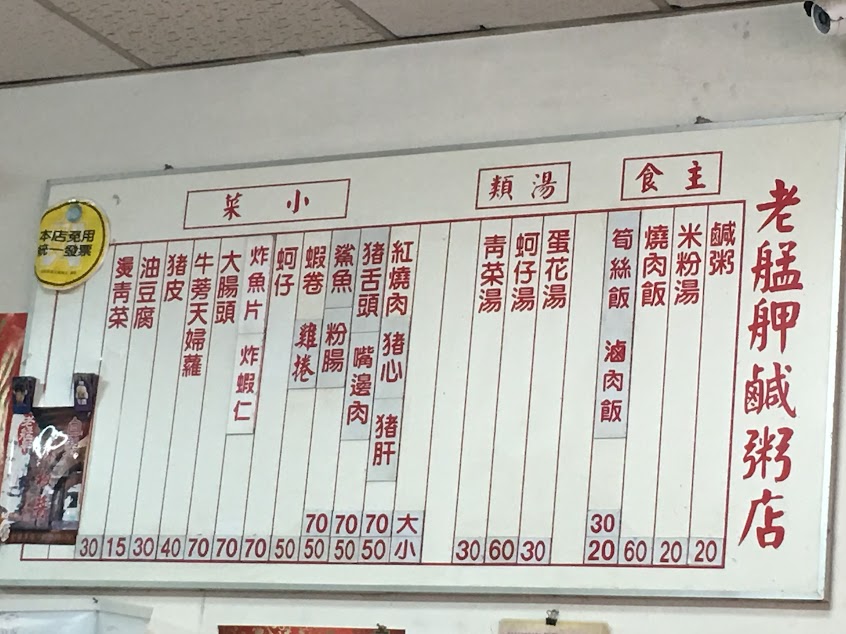 老艋舺鹹粥店
主食
鹹粥 20
米粉湯 20
燒肉飯 60
筍絲飯 滷肉飯 30 20
湯類
蛋花湯 30
蚵仔湯 60
青菜湯 30
小菜
大 小
紅燒肉 豬心 豬肝 70 50
豬舌頭 嘴邊肉 70 50
鯊魚 粉腸 70 50
蝦卷 雞捲 50
蚵仔 70
炸魚片 炸蝦仁 70
大腸頭 70
牛蒡天婦羅 40
豬皮 30
油豆腐 15
燙青菜 30
本店免用
統一發票